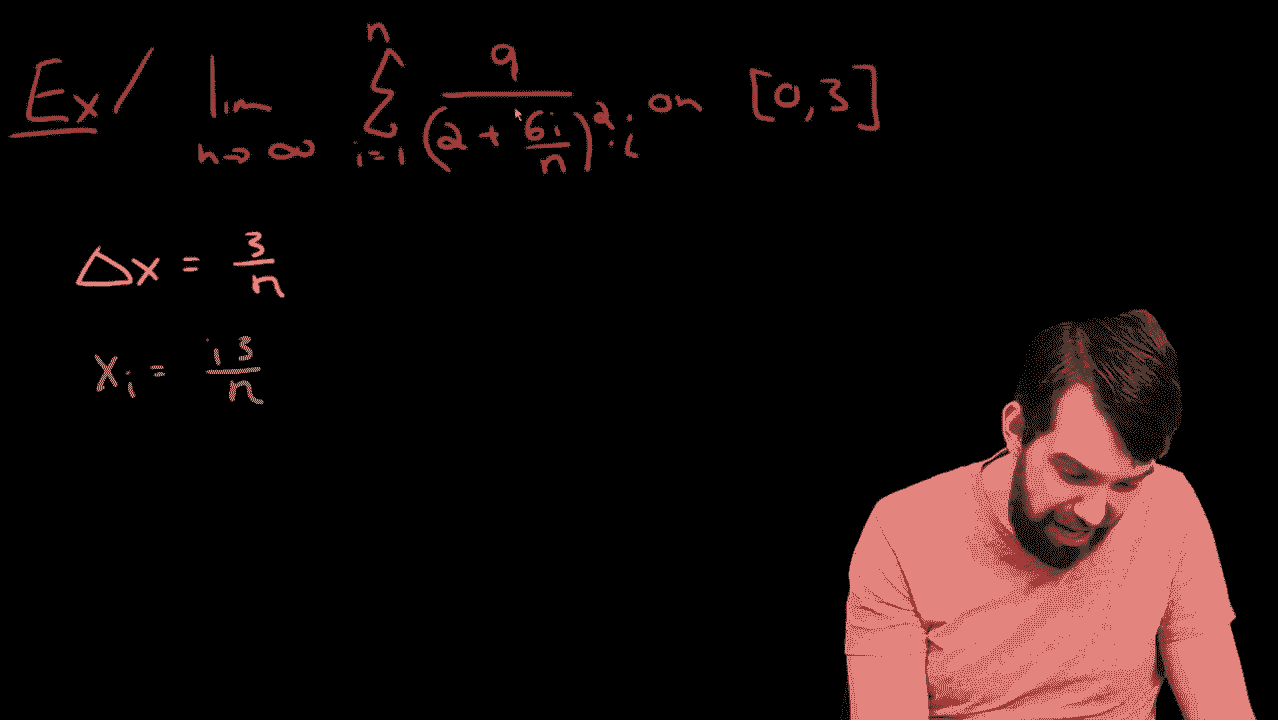 Ex/ lim n→∞ Σ i=1 n 9/(2 + 6i/n)²·i on [0,3]
Δx = 3/n
xᵢ = i3/n